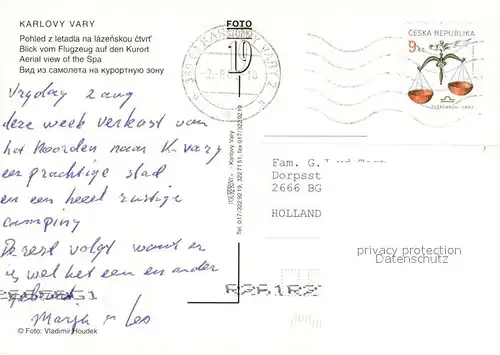 KARLOVY VARY
Pohled z letadla na lázeňskou čtvrť
Blick vom Flugzeug auf den Kurort
Aerial view of the Spa
Вид из самолета на курортную зону
FOTO
ČESKÁ REPUBLIKA
9 Kč
KARLOVY VARY 2
Vrydag 2 aug
deze week verkast van
het Noorden naar K. Vary
een prachtige stad
en een heel rustige
camping
De rest volgt want er
is wel het een en ander
gebeurd
Margh en Leo
- Karlovy Vary
Tel. 017/322 9219, 322 71 51, fax 017/322 9219
Fam. G.
Dorpsst
2666 BG
HOLLAND
privacy protection
Datenschutz
© Foto: Vladimír Houdek